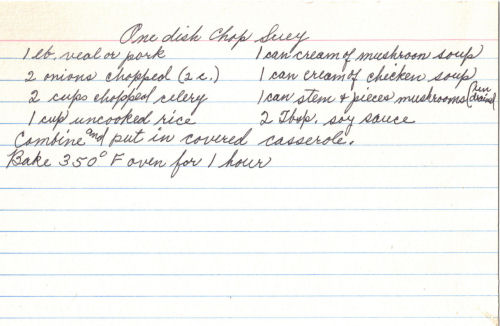 One dish Chop Suey
1 lb. veal or pork 1 can cream of mushroom soup
2 onions chopped (2 c.) 1 can cream of chicken soup
2 cups chopped celery 1 can stem & pieces mushrooms (un drained)
1 cup uncooked rice 2 Tbsp. soy sauce
Combine and put in covered casserole.
Bake 350° F oven for 1 hour